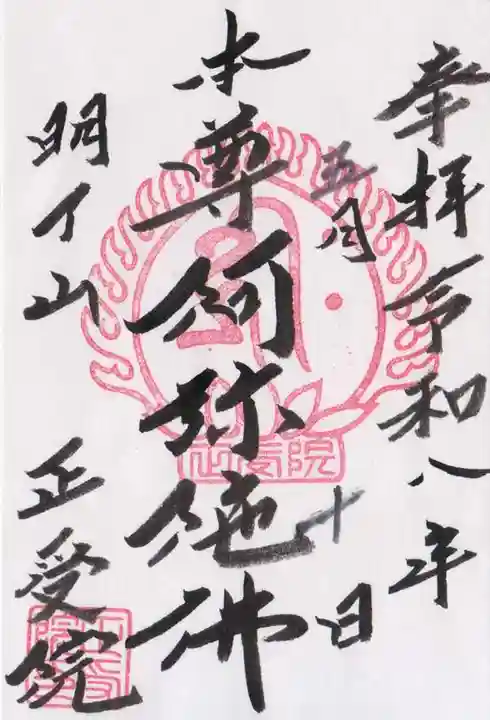 奉拝令和八年
五月十日
本尊阿弥陀佛
正受院
明了山
正受院